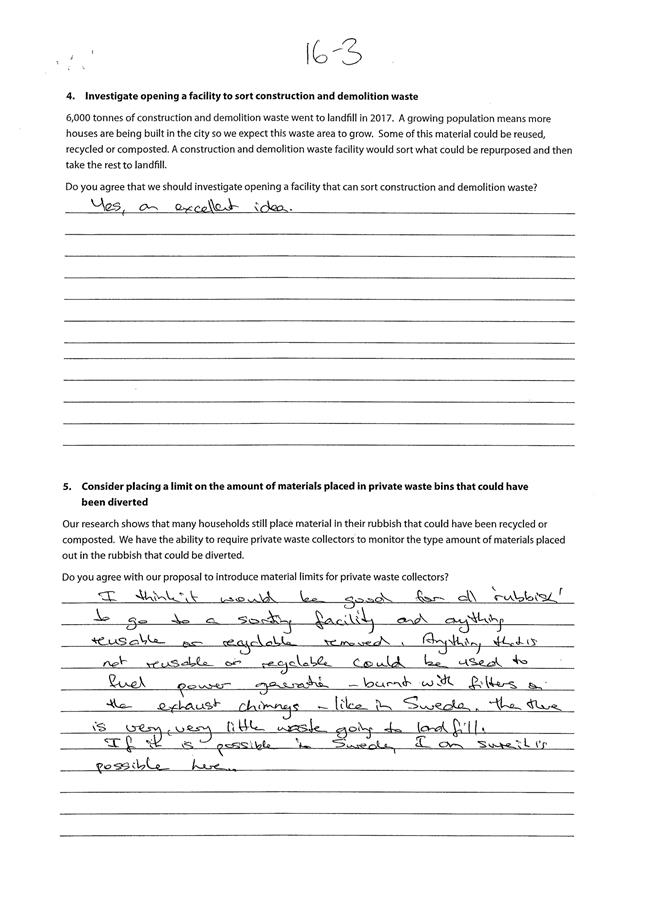 16-3
4. Investigate opening a facility to sort construction and demolition waste
6,000 tonnes of construction and demolition waste went to landfill in 2017. A growing population means more
houses are being built in the city so we expect this waste area to grow. Some of this material could be reused,
recycled or composted. A construction and demolition waste facility would sort what could be repurposed and then
take the rest to landfill.
Do you agree that we should investigate opening a facility that can sort construction and demolition waste?
Yes, an excellent idea.
5. Consider placing a limit on the amount of materials placed in private waste bins that could have
been diverted
Our research shows that many households still place material in their rubbish that could have been recycled or
composted. We have the ability to require private waste collectors to monitor the type amount of materials placed
out in the rubbish that could be diverted.
Do you agree with our proposal to introduce material limits for private waste collectors?
I think it would be good for all 'rubbish'
to go to a sorting facility and anything
reusable or recyclable removed. Anything that is
not reusable or recyclable could be used to
fuel power generation - burnt with filters on
the exhaust chimneys - like in Sweden. The there
is very, very little waste going to landfill.
If it is possible in Sweden, I am sure it is
possible here.